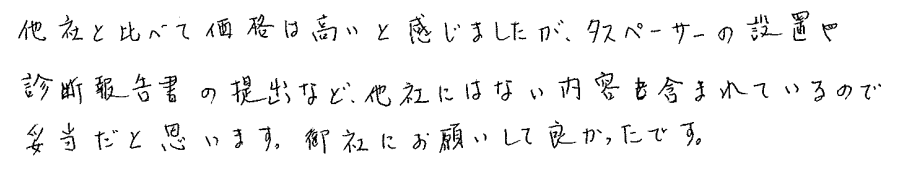 他社と比べて価格は高いと感じましたが、タスペーサーの設置や
診断報告書の提出など、他社にはない内容も含まれているので
妥当だと思います。御社にお願いして良かったです。